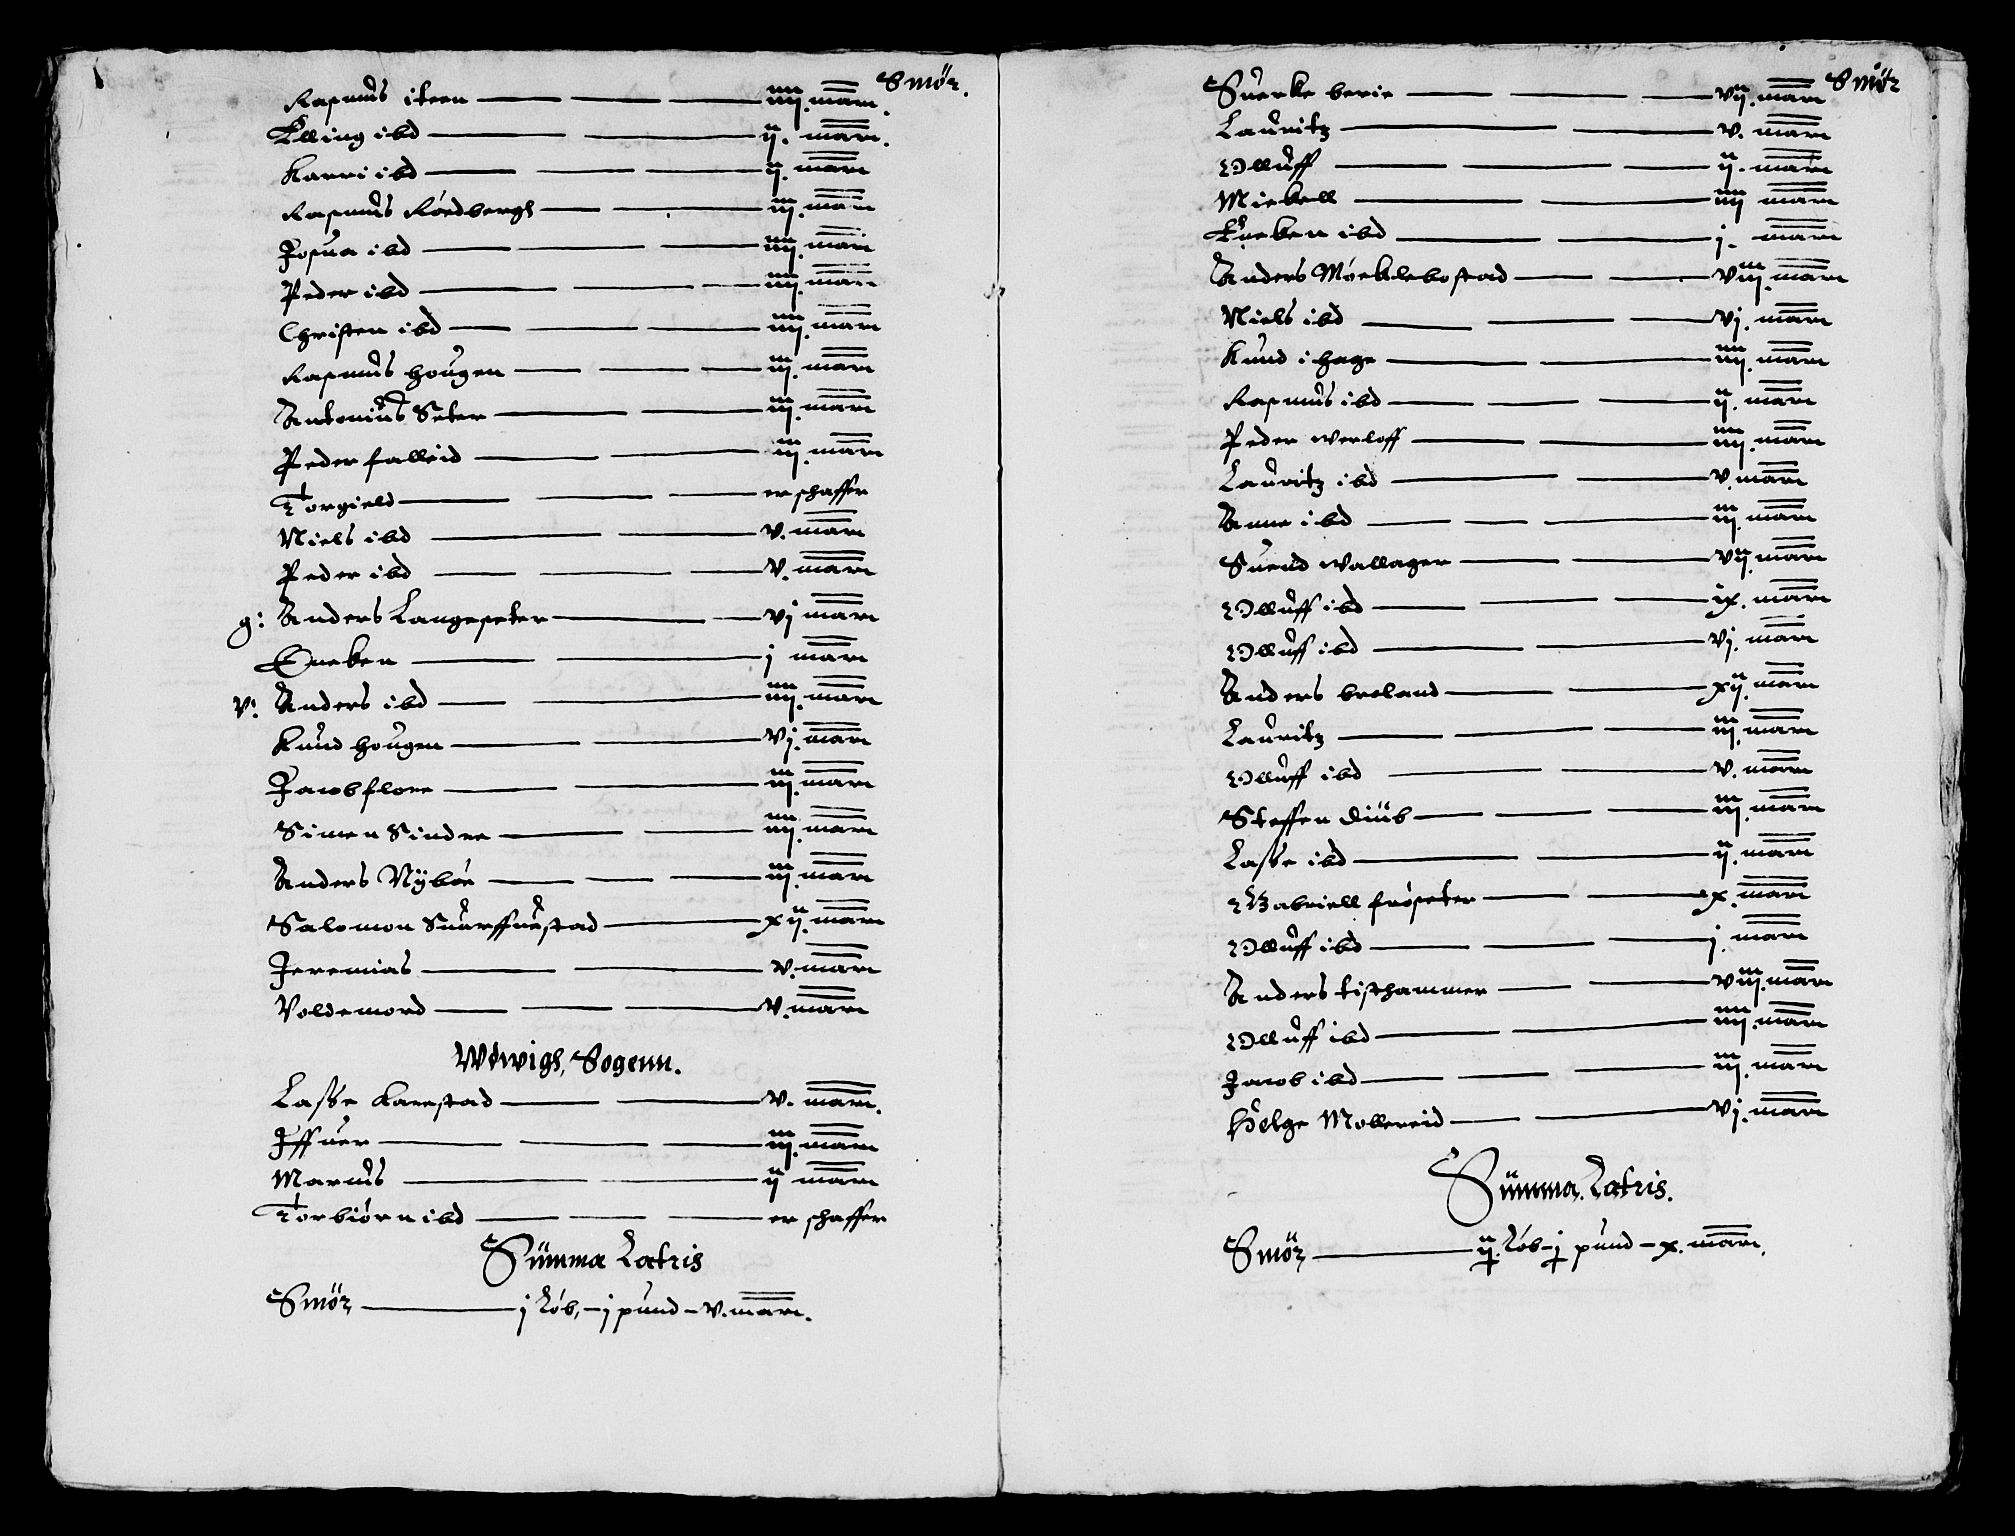 Smør.
Rasmus iteen — — — iiij. marc.
Elling ibd — — ij. marc.
Karri ibd — — — ij. marc
Rasmus Rødbergh — — iij. marc
Josua ibd — — — iiij. marc
Peder ibd — — — iiij. marc
Christen ibd — — — iiij. marc
Rasmus Hougen — — — iij. marc
Antonius Seter — — iij. marc
Peder falleid — — iij. marc
Torgield — — — er schaffer
Niels ibd — — v. marc
Peder ibd — — — v. marc
g: Anders Langeseter — — vj marc
Encken — — j marc
v: Anders ibd — — iiij. marc
Knud Hougen — — vj. marc
Jacob flore — — iij. marc
Simen Sindre — — iiij. marc
Anders Nybøe — — — iij. marc
Salomon Suurffuestad — xij. marc
Jeremias — — v. marc
Voldemord — — — v. marc
Wdwigh, Sogenn.
Lasse Karestad — — v. marc.
Iffuer — — — iij. marc
Marcus — — ij marc
Torbiørn ibd — — — er schaffer
Summa Latris
Smør — j Løb, – j pund – v. marc.
Smør
Suerke berie — — vij. marc
Lauritz — — v. marc
Olluff — — — ij. marc
Mickell — — iiij marc
Encken ibd — — j. marc
Anders Møcklebostad — — viij. marc
Niels ibd — — — vj. marc
Knud i hage — — iiij. marc
Rasmus ibd — — — ij. marc
Peder werloff — — iiij. marc
Lauritz ibd — — v. marc
Anne ibd — — — iij. marc
Suend wallager — — vij. marc
Olluff ibd — — — ix. marc
Olluff ibd — — vj. marc
Anders breland — — xij. marc
Lauritz — — — iij. marc
Olluff ibd — — v. marc
Steffen diüb — — — iij. marc
Lasse ibd — — ij. marc
Gabriell frøseter — — x. marc
Olluff ibd — — — j. marc
Anders kisthammer — — viij. marc
Olluff ibd — — iiij. marc
Jacob ibd — — — iij. marc
Helge Mollereid — — vj. marc
Summa, Latris.
Smør — ij. Løb – j pund – x. marc.